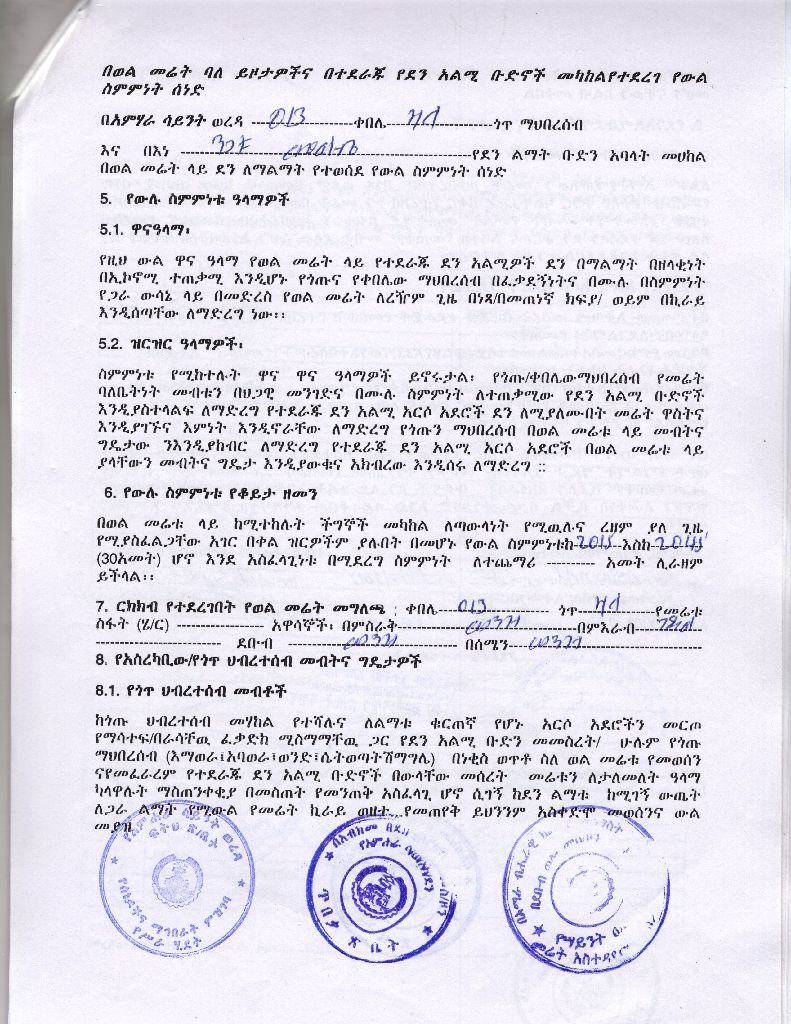 በወል መሬት ባለ ይዞታዎችና በተደራጁ የደን አልሚ ቡድኖች መካከልየተደረገ የውል
ስምምነት ሰነድ
በአምሃራ ሳይንት ወረዳ ------013------ቀበሌ------------ጎጥ ማህበረሰብ
እና በእነ ------------------የደን ልማት ቡድን አባላት መሀከል
በወል መሬት ላይ ደን ለማልማት የተወሰደ የውል ስምምነት ሰነድ
5. የውሉ ስምምነቱ ዓላማዎች
5.1. ዋናዓላማ፡
የዚህ ውል ዋና ዓላማ የወል መሬት ላይ የተደራጁ ደን አልሚዎች ደን በማልማት በዘላቂነት
በኢኮኖሚ ተጠቃሚ እንዲሆኑ የጎጡና የቀበሌው ማህበረሰብ በፈቃደኝነትና በሙሉ በስምምነት
የጋራ ውሳኔ ላይ በመድረስ የወል መሬት ለረዥም ጊዜ በነጻ/በመጠነኛ ክፍያ/ ወይም በኪራይ
እንዲሰጣቸው ለማድረግ ነው፡፡
5.2. ዝርዝር ዓላማዎች፡
ስምምነቱ የሚከተሉት ዋና ዋና ዓላማዎች ይኖሩታል፡ የጎጡ/ቀበሌውማህበረሰብ የመሬት
ባለቤትነት መብቱን በህጋዊ መንገድና በሙሉ ስምምነት ለተጠቃሚው የደን አልሚ ቡድኖች
እንዲያስተላልፍ ለማድረግ የተደራጁ ደን አልሚ አርሶ አደሮች ደን ለሚያለሙበት መሬት ዋስትና
እንዲያገኙና እምነት እንዲኖራቸው ለማድረግ የጎጡን ማህበረሰብ በወል መሬቱ ላይ መብትና
ግዴታው ንእንዲያከብር ለማድረግ የተደራጁ ደን አልሚ አርሶ አደሮች በወል መሬቱ ላይ
ያላቸውን መብትና ግዴታ እንዲያውቁና አክብረው እንዲሰሩ ለማድረግ ::
6. የውሉ ስምምነቱ የቆይታ ዘመን
በወል መሬቱ ላይ ከሚተከሉት ችግኞች መካከል ለጣውላነት የሚዉሉና ረዘም ያለ ጊዜ
የሚያስፈልጋቸው አገር በቀል ዝርዎችም ያሉበት በመሆኑ የውል ስምምነቱከ-2015-እስከ-2045
(30አመት) ሆኖ እንደ አስፈላጊነቱ በሚደረግ ስምምነት ለተጨማሪ ---------- አመት ሊራዘም
ይችላል፡፡
7. ርክክብ የተደረገበት የወል መሬት መግለጫ ; ቀበሌ---013------------ ጎጥ------------የመሬቱ
ስፋት (ሄ/ር) ----------------- አዋሳኞች፡ በምስራቅ------------------በምእራብ------------
------------------------ ደቡብ ------------------------ በሰሜን------------------------
8. የአስረካቢው/የጎጥ ህብረተሰብ መብትና ግዴታዎች
8.1. የጎጥ ህብረተሰብ መብቶች
ከጎጡ ህብረተሰብ መሃከል የተሻሉና ለልማቱ ቁርጠኛ የሆኑ አርሶ አደሮችን መርጦ
የማሳተፍ/በራሳቸዉ ፈቃድከ ሚስማማቸዉ ጋር የደን አልሚ ቡድን መመስረት/ ሁሉም የጎጡ
ማህበረሰብ (እማወራ፤አባወራ፤ወንድ፤ሴትወጣትሽማግሌ) በነቂስ ወጥቶ ስለ ወል መሬቱ የመወሰን
ናየመፈራረም የተደራጁ ደን አልሚ ቡድኖች በውላቸው መሰረት መሬቱን ለታለመለት ዓላማ
ካላዋሉት ማስጠንቀቂያ በመስጠት የመንጠቅ አስፈላጊ ሆኖት ሲገኝ ከደን ልማቱ ከሚገኝ ውጤት
ለጋራ ልማት የሚውል የመሬት ኪራይ ወዘተ የመጠየቅ ይህንንም አስቀድሞ መወሰንና ውል
መያዝ
ፍትህ ጽ/ቤት
የሰነዶችና ማኅበራት ምዝገባ
የሥራ ሂደት
ጥበቃ ጽ ቤት
መሬት አስተዳደር